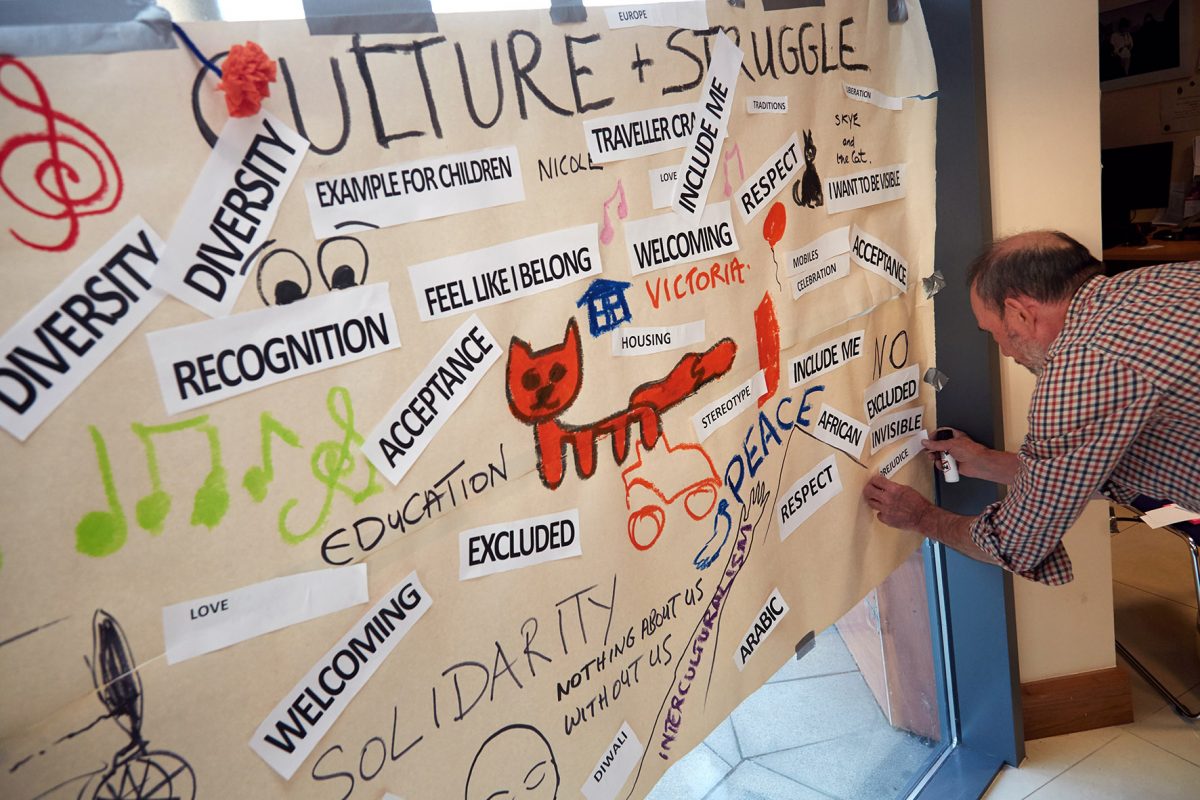 EUROPE
CULTURE + STRUGGLE
TRADITIONS
LIBERATION
DIVERSITY
DIVERSITY
EXAMPLE FOR CHILDREN
NICOLE
TRAVELLER CRA
INCLUDE ME
LOVE
RESPECT
SKYE
and
the Cat.
I WANT TO BE VISIBLE
RECOGNITION
FEEL LIKE I BELONG
WELCOMING
VICTORIA.
MOBILES
CELEBRATION
ACCEPTANCE
HOUSING
ACCEPTANCE
STEREOTYPE
INCLUDE ME
NO
EXCLUDED
INVISIBLE
PREJUDICE
AFRICAN
PEACE
RESPECT
EDUCATION
EXCLUDED
LOVE
WELCOMING
SOLIDARITY
NOTHING ABOUT US
WITHOUT US
INTERCULTURALISM
ARABIC
DIWALI